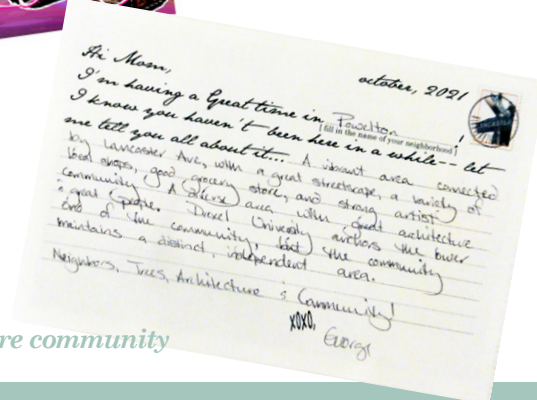 Hi Mom,
october, 2021
I'm having a Great time in Powelton !
[fill in the name of your neighborhood]
I know you haven't been here in a while -- let
me tell you all about it... A vibrant area connected
by Lancaster Ave, with a great streetscape, a variety of
local shops, good grocery store, and strong artist
community. A diverse area with great architecture
& great people. Drexel University anchors the lower
end of the community, but the community
maintains a distinct, independent area.
Neighbors, Trees, Architecture & Community!
xoxo,
George
re community